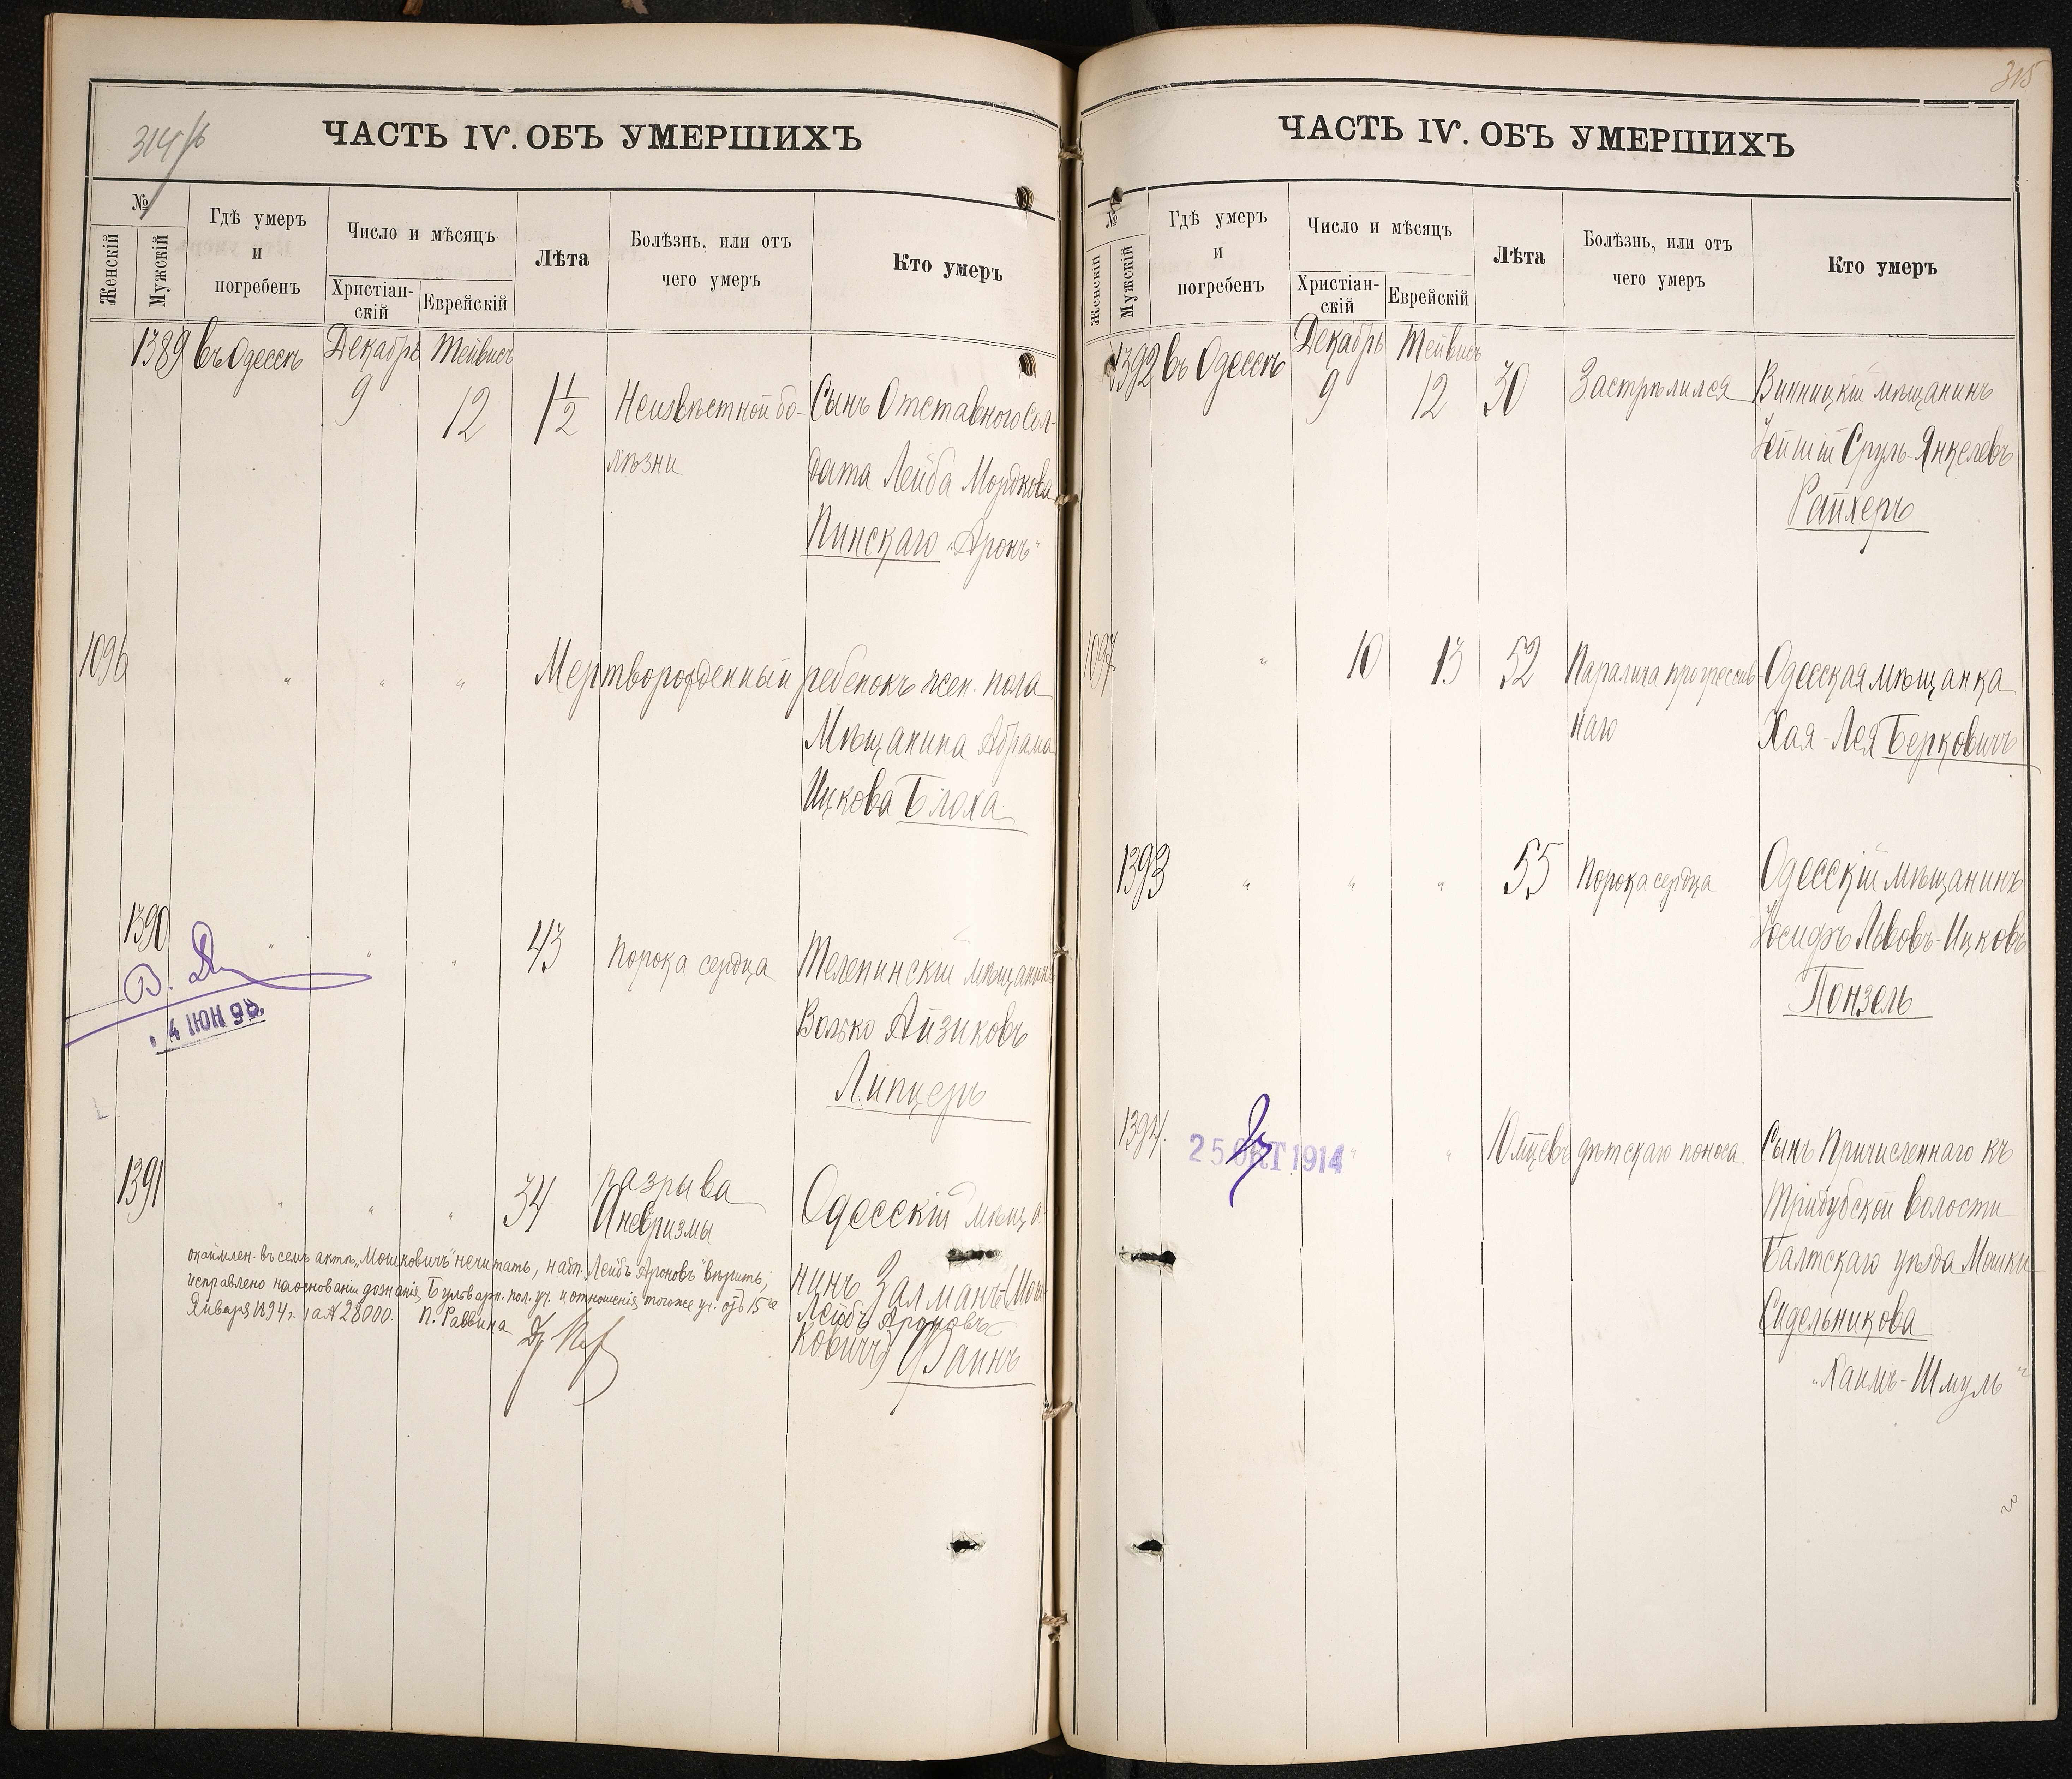 314/б
ЧАСТЬ IV. ОБЪ УМЕРШИХЪ
№
Женскій
Мужскій
Гдѣ умеръ
и
погребенъ
Число и мѣсяцъ
Христіан-
скій
Еврейскій
Лѣта
Болѣзнь, или отъ
чего умеръ
Кто умеръ
1389 въ Одессѣ Декабрь Тейвисъ
9 12 1½ Неизвѣстной бо- Сынъ Отставного Сол-
лѣзни дата Лейба Мордкова
Пинскаго „Аронъ“
1096 „ „ „ Мертворожденный ребенокъ жен. пола
Мѣщанина Абрама
Ицкова Блоха
1390 „ „ „ 43 Порока сердца Телепинскій мѣщанинъ
Волько Айзиковъ
Липцеръ
4 ІЮН 98
1391 „ „ „ 34 разрыва Одесскій мѣща-
Аневризмы
нинъ Залманъ (Мош-
Лейбъ Ароновъ
ковичъ) Файнъ
окаймлен. въ семъ актѣ „Мошковичъ“ нечитать, надп. „Лейбъ Ароновъ“ вѣрить,
исправлено на основаніи дознанія Бульварн. пол. уч. и отношенія тогоже уч. отъ 15го
Января 1894 г. за № 28000. П. Раввина
315
ЧАСТЬ IV. ОБЪ УМЕРШИХЪ
№
Женскій
Мужскій
Гдѣ умеръ
и
погребенъ
Число и мѣсяцъ
Христіан-
скій
Еврейскій
Лѣта
Болѣзнь, или отъ
чего умеръ
Кто умеръ
1392 въ Одессѣ Декабрь Тейвисъ
9 12 30 Застрѣлился Винницкій мѣщанинъ
Сруль-Янкелевъ
Райхеръ
1097 „ 10 13 52 Паралича прогрессив- Одесская мѣщанка
наго Хая-Лея Берковичъ
1393 „ „ „ 55 Порока сердца Одесскій мѣщанинъ
Іосифъ Львовъ-Ицковъ
Понзель
1394 „ „ 10 мцевъ дѣтскаго поноса Сынъ Причисленнаго къ
25 ОКТ 1914
Тридубской волости
Балтскаго уѣзда Мошки
Сидельникова
„Хаимъ-Шмуль“